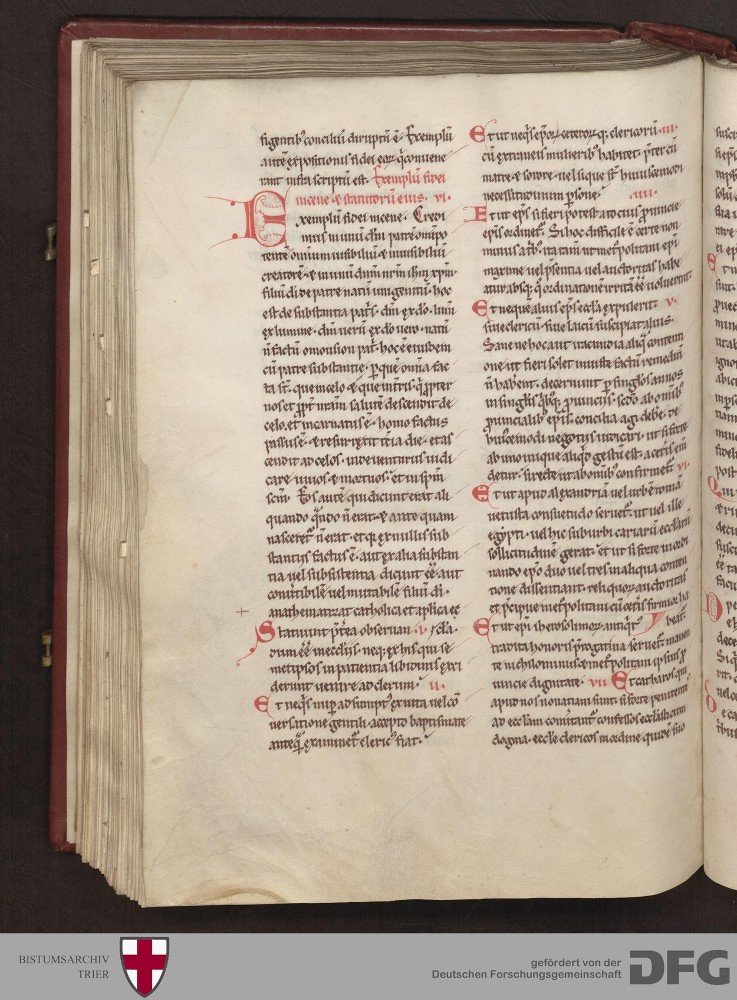 figentib' conciliū diruptū ē. Exemplū
autē expositionis fidei eoꝝ q̄ conuene
rant infra scriptū est. Exemplū fidei
nicene & statutorū eius. vi.
Exemplū fidei nicene. Credi
mus in unū dm̄ patrē omnipo
tentē omniū uisibiliū & inuisibiliū
creatorē. & in unū dn̄m nr̄m ihm̄ xpm̄
filiū di de patre natū unigenitū. hoc
est de substantia patris. dm̄ ex do. lum̄
ex lumine. dm̄ uerū ex do uero. natū
n̄ factū omousion patri. hoc ē eiusdem
cū patre substantie. p quē om̄ia fac
ta st̄. que in celo & que in tr̄is. q̄ propter
nos et propt̄ nr̄am salutē descendit de
celo. et incarnatus ē. homo factus
passus ē. & resurrexit tēia die. et as
cendit ad celos. inde uenturus iudi
care uiuos & mortuos. et in spm̄
scm̄. Eos autē qui dicunt erat ali
quando q̄ndo n̄ erat. & ante quam
nasceret' n̄ erat. et q; ex nullis sub
stantiis factus ē. aut ex alia substan
tia uel subsistentia dicunt ēē. aut
conuertibilē uel mutabilē filiū di.
anathematizat catholica et aplica ec
Statuunt p̄terea obseruan .i. / clā.
dum ēē in ecclīis. neq; ex his qui se
metipsos inpatientia libidinis exci
derunt uenire ad clerum. ii.
Et neq̄s nup adsumpt' ex uita uel cō
uersatione gentili. accepto baptismate
anteq̄ examinet' cleric' fiat.
Et ut neq̄s ep̄oꝝ ceteroꝝ q; clericorū .iii.
cū extraneis mulierib' habitet. p̄ter cū
matre & sorore. uel siqua st̄ huiuscemodi
necessitudinum psone. .iiii.
Et ut ep̄s si fieri potest a tocius prouincie
ep̄is ordinet'. Si hoc difficile ē certe non
minus a trib'. ita tam̄ ut metropolitani ep̄i
maxime uel p̄sentia uel auctoritas habe
atur absq; q̄ ordinatione irritā ēē uoluerunt
Et ne quē alius ep̄s eccla expulerit v.
siue clericū siue laicū suscipiat alius.
Sane ne hoc aut iracundia aliq̄ contenti
one. ut fieri solet iniuste factū remediū
n̄ habeat. decernunt p singłos annos
in singlis q̄bq; prouinciis. scdo ab omib'
prouincialib' ep̄is concilia agi debe. de
huiuscemodi negotiis iudicari. ut si forte
ab uno inique aliqd gestū est. a cet̄is em̄
detur. si recte ut ab omib' confirmet'. vi.
Et ut apud alexandriā uel urbē romā
uetusta consuetudo seruet'. ut uel ille
egypti. uel hic suburbicariarū ecclarū
sollicitudinē gerat. et ut si forte in ordi
nando ep̄o duo uel tres in aliqua conten
tione dissentiant. reliquoꝝ auctoritas
et pcipue metropolitani cū cet̄is firmior ha
Et ut ep̄i iherosolimoꝝ antiq̄t' / beat'.
tradita honoris p̄rogatiua seruet'. manen
te nichilominus & metropolitani ipsius p
uincie dignitate. vii. Et catharos qui
apud nos nouatiani sunt. si forte penitentes
ad ecclam conuitant' confessos ecclasticum
dogma. eccle clericos in ordine quidē suo
BISTUMSARCHIV
TRIER
gefördert von der
Deutschen Forschungsgemeinschaft
DFG